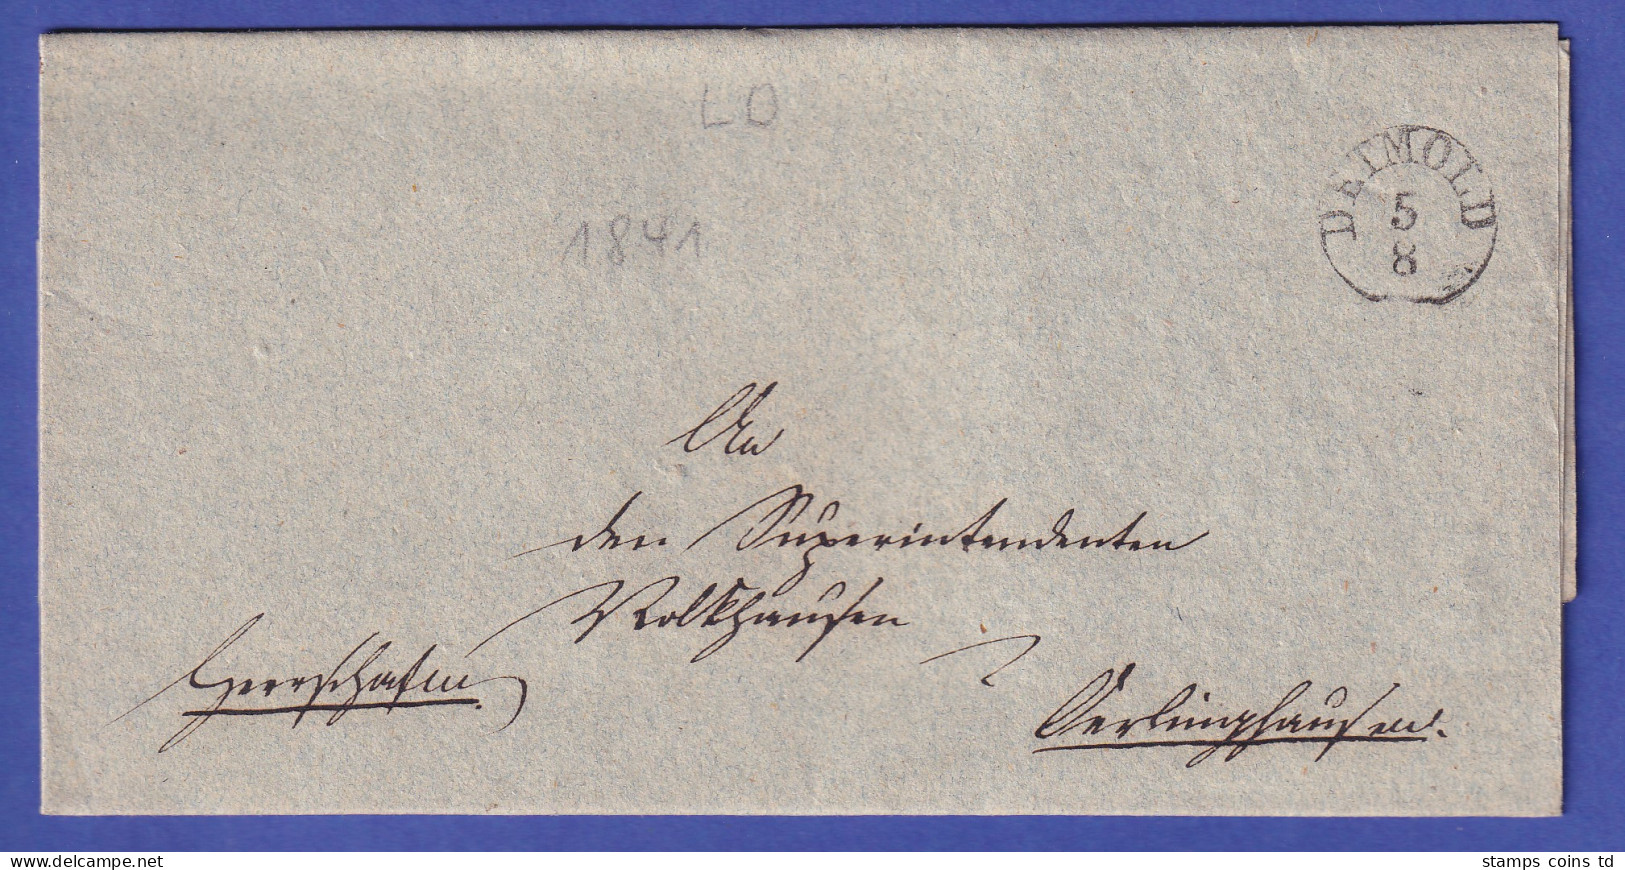 LD
DETMOLD
5
8
1841
An
den Superintendenten
Volkhausen
Herrschaftl.
Oerlinghausen.
www.delcampe.net
stamps coins td